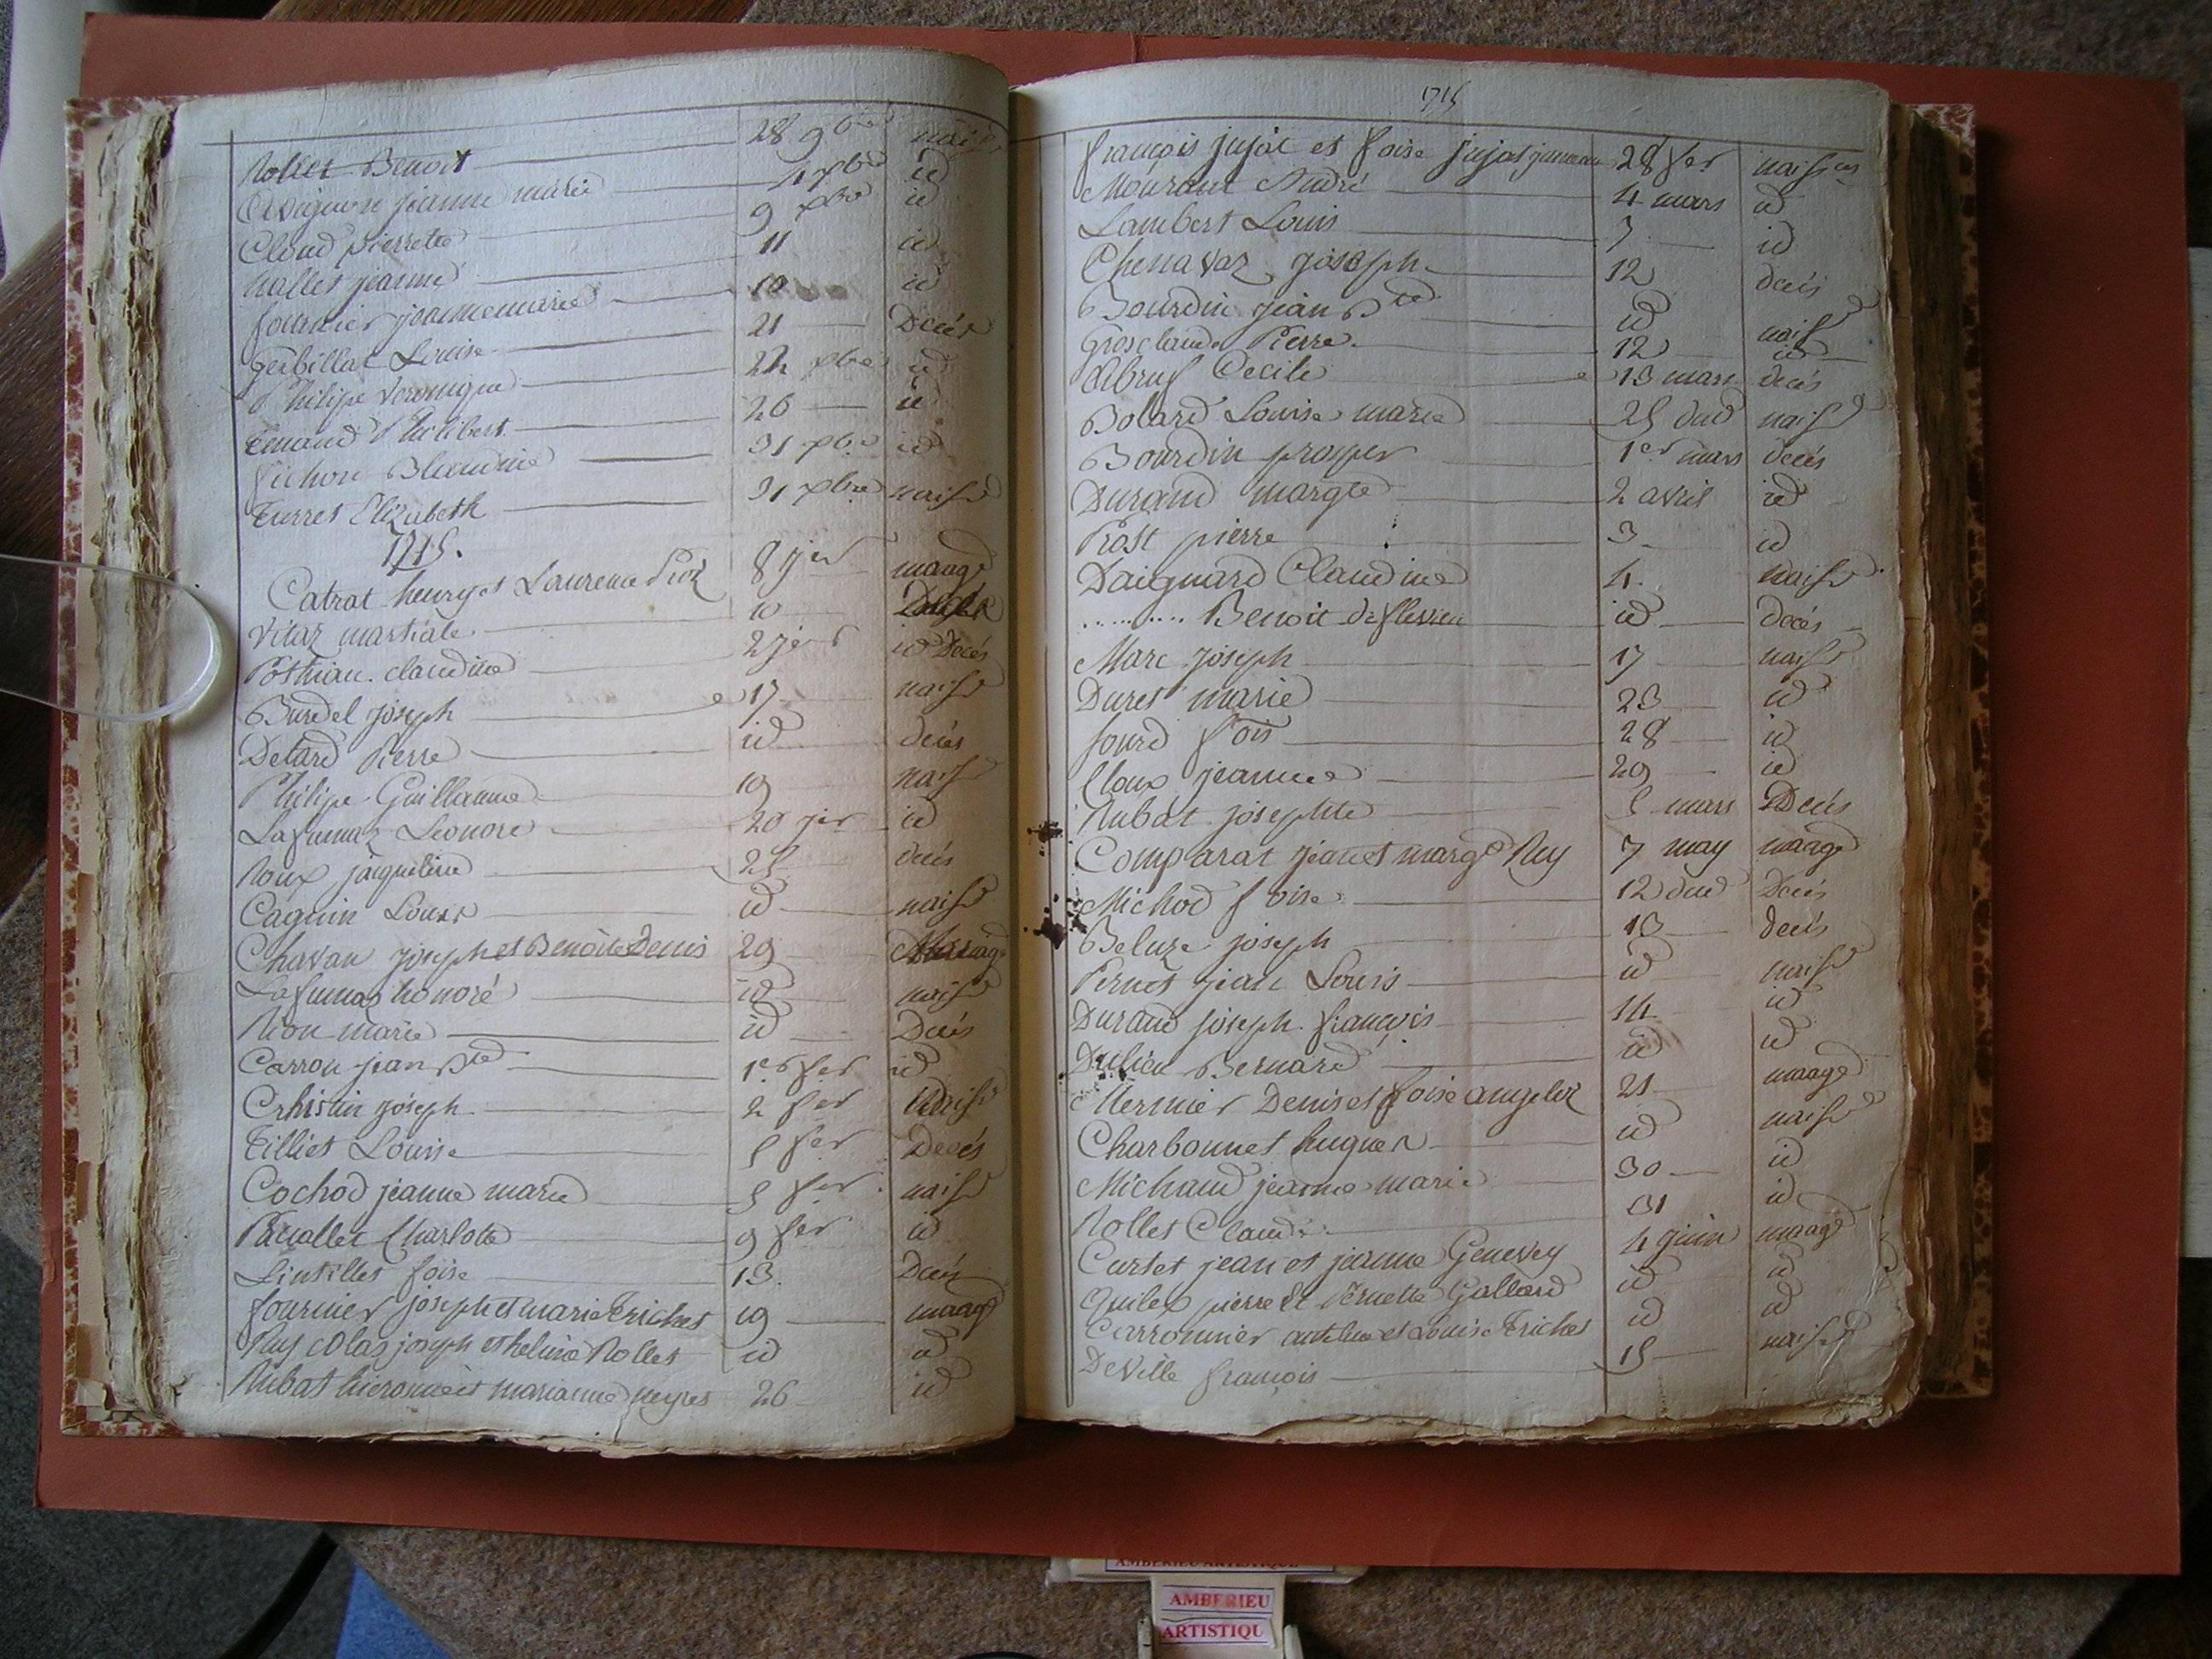 Rollet Benoit 28 9bre nais
jeanne marie 4 xbre id
Cloud pierrette 9 xbre id
Nallet jeanne 11 id
fournier jeannemarie 10 id
gerbillat Louise 21 Decés
Philipe Veronique 22 xbre id
Tenand Philibert 26 id
Pichon Blandine 31 xbre id
Turret Elizabeth 31 xbre naisce
1715.
Catrat henry et Laurence 8 jer maage
Vitaz martiale 10
Pothian claudine 2 jer id Decés
Burdel joseph 17 naisce
Detard Pierre id decés
Philipe Guillaume 19 naisce
Lafumaz Leonore 20 jer id
Roux jaqueline 25 decés
Caquin Louis id naisce
Chavan joseph et Benoite Denis 29 Marriage
Lafumaz honoré id naisce
Rion marie id Decés
Carron jean Bte 1er fer id
Crhistin joseph 2 fer Naisce
Tilliet Louise 5 fer Decés
Cochod jeanne marie 5 fer naisce
Charlotte 9 fer id
Lintillet foise 13 Decés
fournier joseph et marie Trichet 19 maage
Ruy colas joseph et heleine Rollet id id
Rubat hieronime et marianne peyret 26 id
1715
françois jujat et foise jujat jumeau 28 fer naisces
Mourant André 4 mars id
Lambert Louis 7 id
Chenavaz joseph 12 decés
Bourdin jean Bte id naisce
Grosclaude Pierre 12 id
Abruf Cecile 13 mars decés
Bolard Louise marie 25 dud naisce
Bourdin prosper 1er mars decés
Durand margte 2 avril id
Prost pierre 3 id
Daignard Claudine 4 naisce
.......... Benoit deflevieu id decés
Marc joseph 17 naisce
Duret marie 23 id
fourd fois 28 id
Cloux jeanne 29 id
Rubat josephte 5 mars Decés
Comparat jean et marge Ruy 7 may maage
Michod foise 12 dud Decés
Beluze joseph 13 decés
Pernet jean Louis id naisce
Durand joseph françois 14 id
Dulieu Bernard id id
Mermier Denis et foise angeloz 21 maage
Charbonnet hugues id naisce
Michaud jeanne marie 30 id
Rollet Claude 31 id
Curtet jean et jeanne Genevey 4 juin maage
pierre et Pernette Galland id id
Carronnier antelme et Louise Trichet id id
DeVille françois 15 naisce
AMBERIEU ARTISTIQUE
AMBERIEU
ARTISTIQU